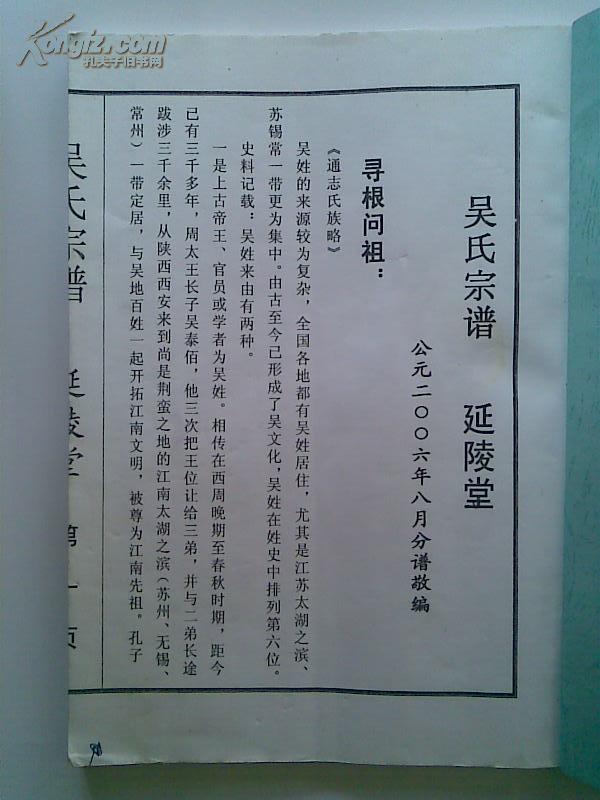 Kongfz.com
孔夫子旧书网
吴氏宗谱 延陵堂
公元二〇〇六年八月分谱敬编
寻根问祖：
《通志氏族略》
吴姓的来源较为复杂，全国各地都有吴姓居住，尤其是江苏太湖之滨、
苏锡常一带更为集中。由古至今已形成了吴文化，吴姓在姓史中排列第六位。
史料记载：吴姓来由有两种。
一是上古帝王、官员或学者为吴姓。相传在西周晚期至春秋时期，距今
已有三千多年，周太王长子吴泰佰，他三次把王位让给三弟，并与二弟长途
跋涉三千余里，从陕西西安来到尚是荆蛮之地的江南太湖之滨（苏州、无锡、
常州）一带定居，与吴地百姓一起开拓江南文明，被尊为江南先祖。孔子
吴氏宗谱 延陵堂 第一页